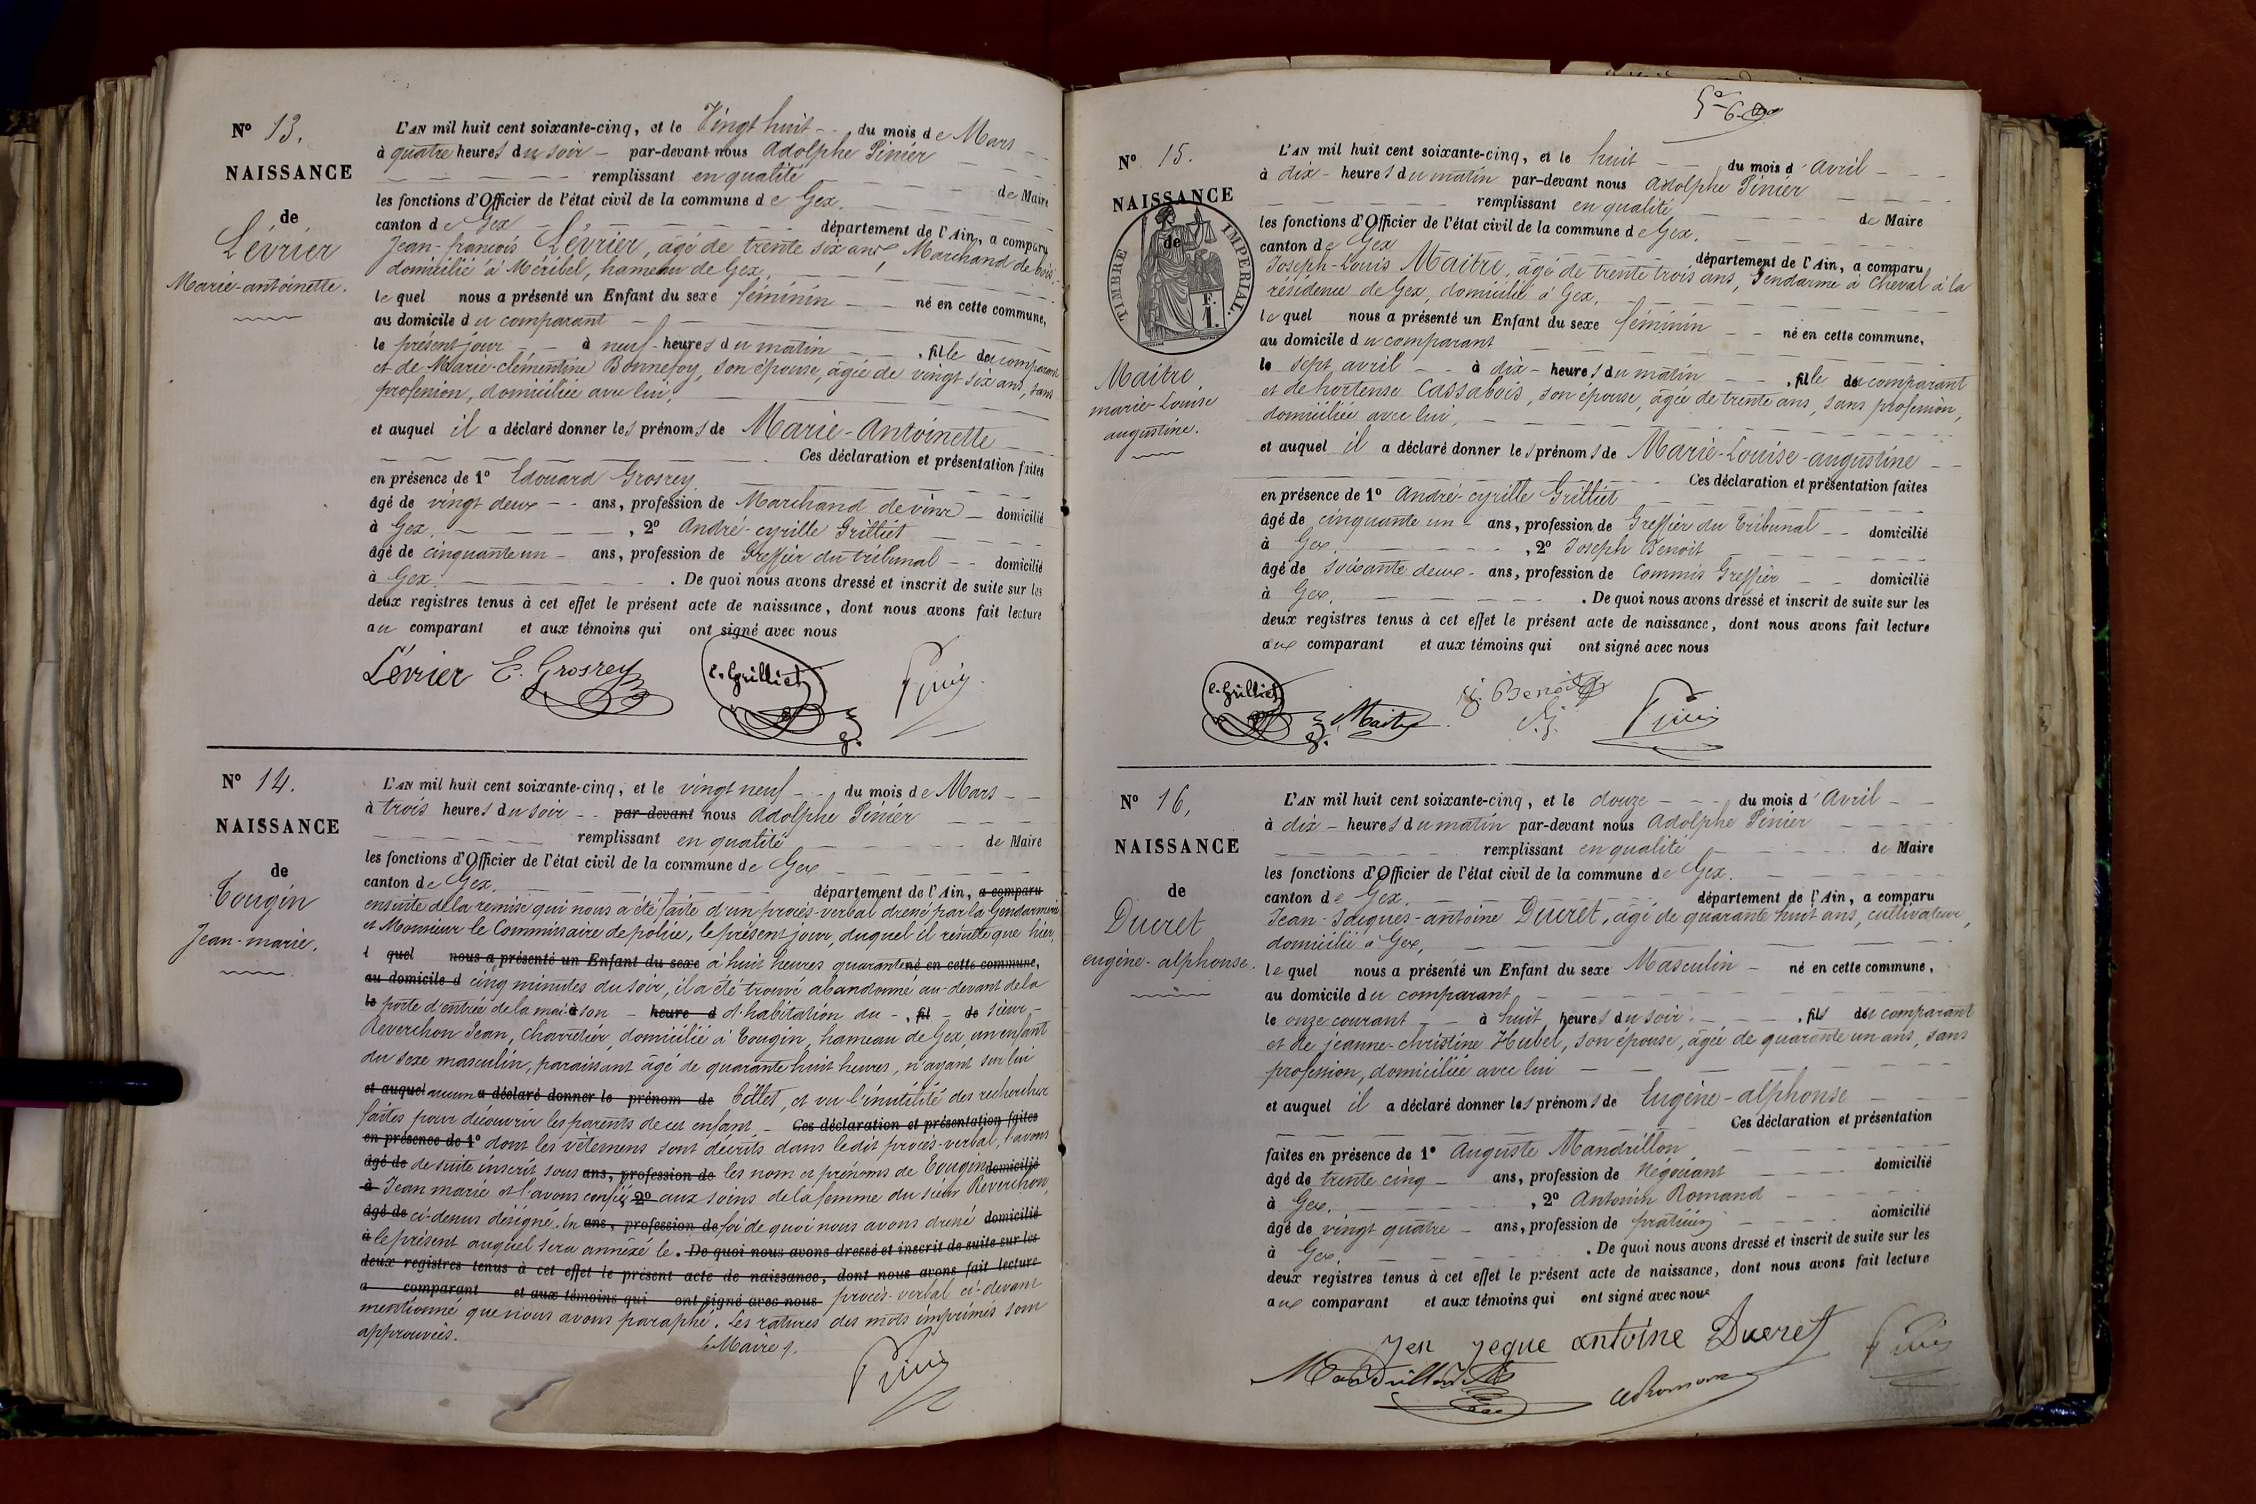 N° 13.
NAISSANCE
de
Lévrier
Marie-antoinette.
L'AN mil huit cent soixante-cinq, et le Vingt huit du mois de Mars
à quatre heures du soir par-devant nous Adolphe Pinier
remplissant en qualité de Maire
les fonctions d'Officier de l'état civil de la commune de Gex.
canton de Gex département de l'Ain, a comparu
Jean-françois Lévrier, âgé de trente six ans, Marchand de bois,
domicilié à Méribel, hameau de Gex,
lequel nous a présenté un Enfant du sexe féminin né en cette commune,
au domicile du comparant
le présent jour à neuf heures du matin, fille du comparant
et de Marie-clémentine Bonnefoy, son épouse, âgée de vingt six ans, sans
profession, domiciliée avec lui,
et auquel il a déclaré donner les prénoms de Marie-Antoinette
Ces déclaration et présentation faites
en présence de 1° Edouard Grosrey
âgé de vingt deux ans, profession de Marchand de vins domicilié
à Gex, 2° André-cyrille Grilliet
âgé de cinquante un ans, profession de Greffier du tribunal domicilié
à Gex. De quoi nous avons dressé et inscrit de suite sur les
deux registres tenus à cet effet le présent acte de naissance, dont nous avons fait lecture
au comparant et aux témoins qui ont signé avec nous
Lévrier E. Grosrey C. Grilliet Pinier
N° 14.
NAISSANCE
de
Tougin
Jean-marie.
L'AN mil huit cent soixante-cinq, et le vingt neuf du mois de Mars
à trois heures du soir par-devant nous Adolphe Pinier
remplissant en qualité de Maire
les fonctions d'Officier de l'état civil de la commune de Gex
canton de Gex. département de l'Ain, a comparu
ensuite de la remise qui nous a été faite d'un procès-verbal dressé par la Gendarmerie
et Monsieur le Commissaire de police, le présent jour, duquel il résulte que hier,
l quel nous a présenté un Enfant du sexe à huit heures quarante né en cette commune,
au domicile d cinq minutes du soir, il a été trouvé abandonné au-devant de la
le porte d'entrée de la mai à son heure d d'habitation du, fil de sieur
Reverchon Jean, charretier, domicilié à Tougin, hameau de Gex, un enfant
du sexe masculin, paraissant âgé de quarante huit heures, n'ayant sur lui
et auquel aucun a déclaré donner le prénom de billet, et vu l'inutilité des recherches
faites pour découvrir les parents de cet enfant Ces déclaration et présentation faites
en présence de 1° dont les vêtemens sont décrits dans le dit procès-verbal, l'avons
âgé de de suite inscrit sous ans, profession de les nom et prénoms de Tougin domicilié
à Jean marie et l'avons confié, 2° aux soins de la femme du sieur Reverchon,
âgé de ci-dessus désigné. En ans, profession de foi de quoi nous avons dressé domicilié
à le présent auquel sera annexé le. De quoi nous avons dressé et inscrit de suite sur les
deux registres tenus à cet effet le présent acte de naissance, dont nous avons fait lecture
a comparant et aux témoins qui ont signé avec nous procès-verbal ci-devant
mentionné que nous avons paraphé. Les ratures des mots imprimés sont
approuvées.
Le Maire
Pinier
5e
6
N° 15.
NAISSANCE
de
TIMBRE IMPERIAL.
F.
1.
Maitre,
marie-Louise
augustine.
L'AN mil huit cent soixante-cinq, et le huit du mois d'Avril
à dix heures du matin par-devant nous Adolphe Pinier
remplissant en qualité de Maire
les fonctions d'Officier de l'état civil de la commune de Gex.
canton de Gex département de l'Ain, a comparu
Joseph-Louis Maitre, âgé de trente trois ans, Gendarme à cheval à la
résidence de Gex, domicilié à Gex,
lequel nous a présenté un Enfant du sexe féminin né en cette commune,
au domicile du comparant
le sept avril à dix heures du matin, fille du comparant
et de hortense Cassabois, son épouse, âgée de trente ans, sans profession,
domiciliée avec lui,
et auquel il a déclaré donner les prénoms de Marie-Louise-augustine
Ces déclaration et présentation faites
en présence de 1° André-cyrille Grilliet
âgé de cinquante un ans, profession de Greffier du Tribunal domicilié
à Gex. , 2° Joseph Benoit
âgé de soixante deux ans, profession de Commis Greffier domicilié
à Gex. De quoi nous avons dressé et inscrit de suite sur les
deux registres tenus à cet effet le présent acte de naissance, dont nous avons fait lecture
aux comparant et aux témoins qui ont signé avec nous
C. Grilliet Maitre J. Benoit Pinier
N° 16,
NAISSANCE
de
Ducret
eugène-alphonse.
L'AN mil huit cent soixante-cinq, et le douze du mois d'Avril
à dix heures du matin par-devant nous Adolphe Pinier
remplissant en qualité de Maire
les fonctions d'Officier de l'état civil de la commune de Gex.
canton de Gex. département de l'Ain, a comparu
Jean-Jacques-antoine Ducret, âgé de quarante huit ans, cultivateur,
domicilié à Gex,
lequel nous a présenté un Enfant du sexe Masculin né en cette commune,
au domicile du comparant
le onze courant à huit heures du soir, fils du comparant
et de jeanne-christine Hubel, son épouse, âgée de quarante un ans, sans
profession, domiciliée avec lui
et auquel il a déclaré donner les prénoms de Eugène-alphonse
Ces déclaration et présentation
faites en présence de 1° Auguste Mandrillon
âgé de trente cinq ans, profession de Négociant domicilié
à Gex. , 2° Antonin Romand
âgé de vingt quatre ans, profession de praticien domicilié
à Gex. De quoi nous avons dressé et inscrit de suite sur les
deux registres tenus à cet effet le présent acte de naissance, dont nous avons fait lecture
aux comparant et aux témoins qui ont signé avec nous
Jen jeque antoine Ducret Pinier
Mandrillon A Romand